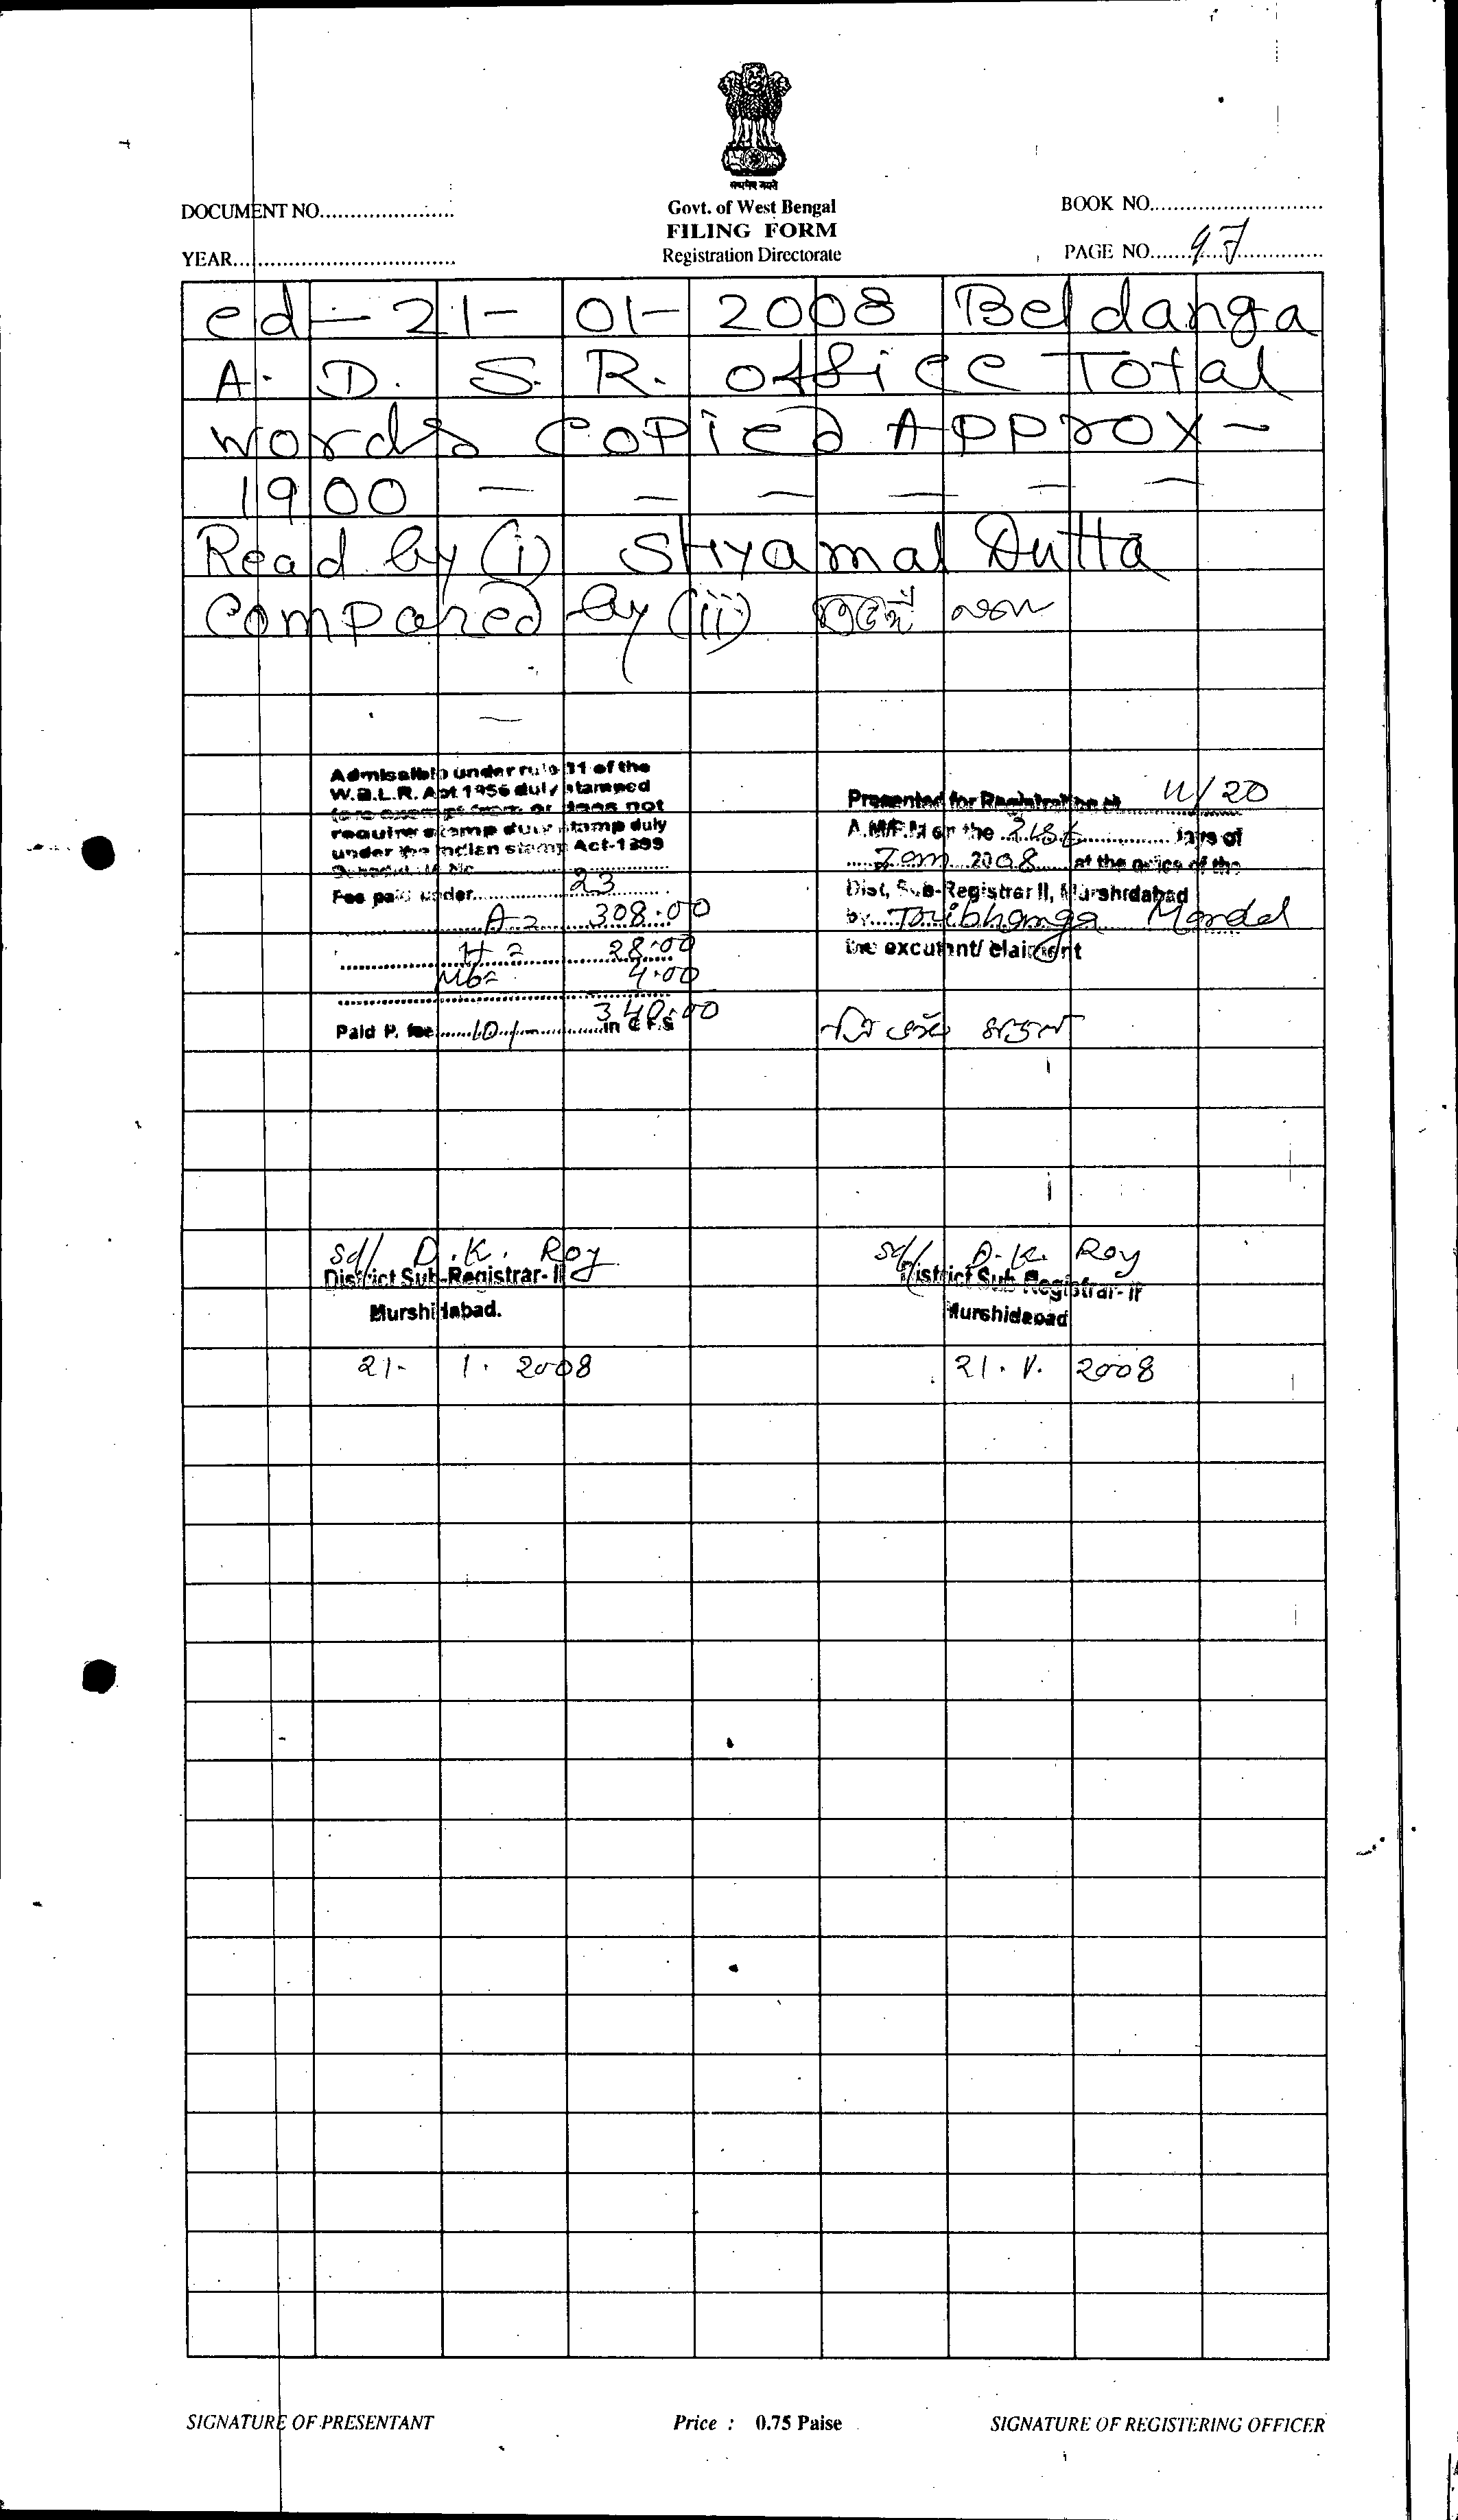 सत्यमेव जयते
Govt. of West Bengal
FILING FORM
Registration Directorate
DOCUMENT NO.
YEAR
BOOK NO.
PAGE NO. 97
ed - 21 - 01 - 2008 Beldanga
A. D. S. R. office Total
words copied Approx -
1900 - - - - - -
Read by (i) Shyamal Dutta
Compared by (ii)
Admissible under rule 31 of the
W.B.L.R. Act 1956 duly stamped
or does not
require stamp duty stamp duly
under the Indian stamp Act-1899
Fee paid under 23
A = 308.00
H = 28.00
Mb = 4.00
340.00
Paid P. fee 10/- in C.F.S
Presented for Registration at 11/20
A.M/P.M on the 21st days of
Jan 2008 at the office of the
Dist, Sub-Registrar II, Murshidabad
by Tribhanga Mondal
the excutant/ claimant
Sd/ D.K. Roy
District Sub-Registrar- II
Murshidabad.
21- 1. 2008
Sd/ D.K. Roy
District Sub Registrar- II
Murshidabad
21. 1. 2008
SIGNATURE OF PRESENTANT
Price : 0.75 Paise
SIGNATURE OF REGISTERING OFFICER